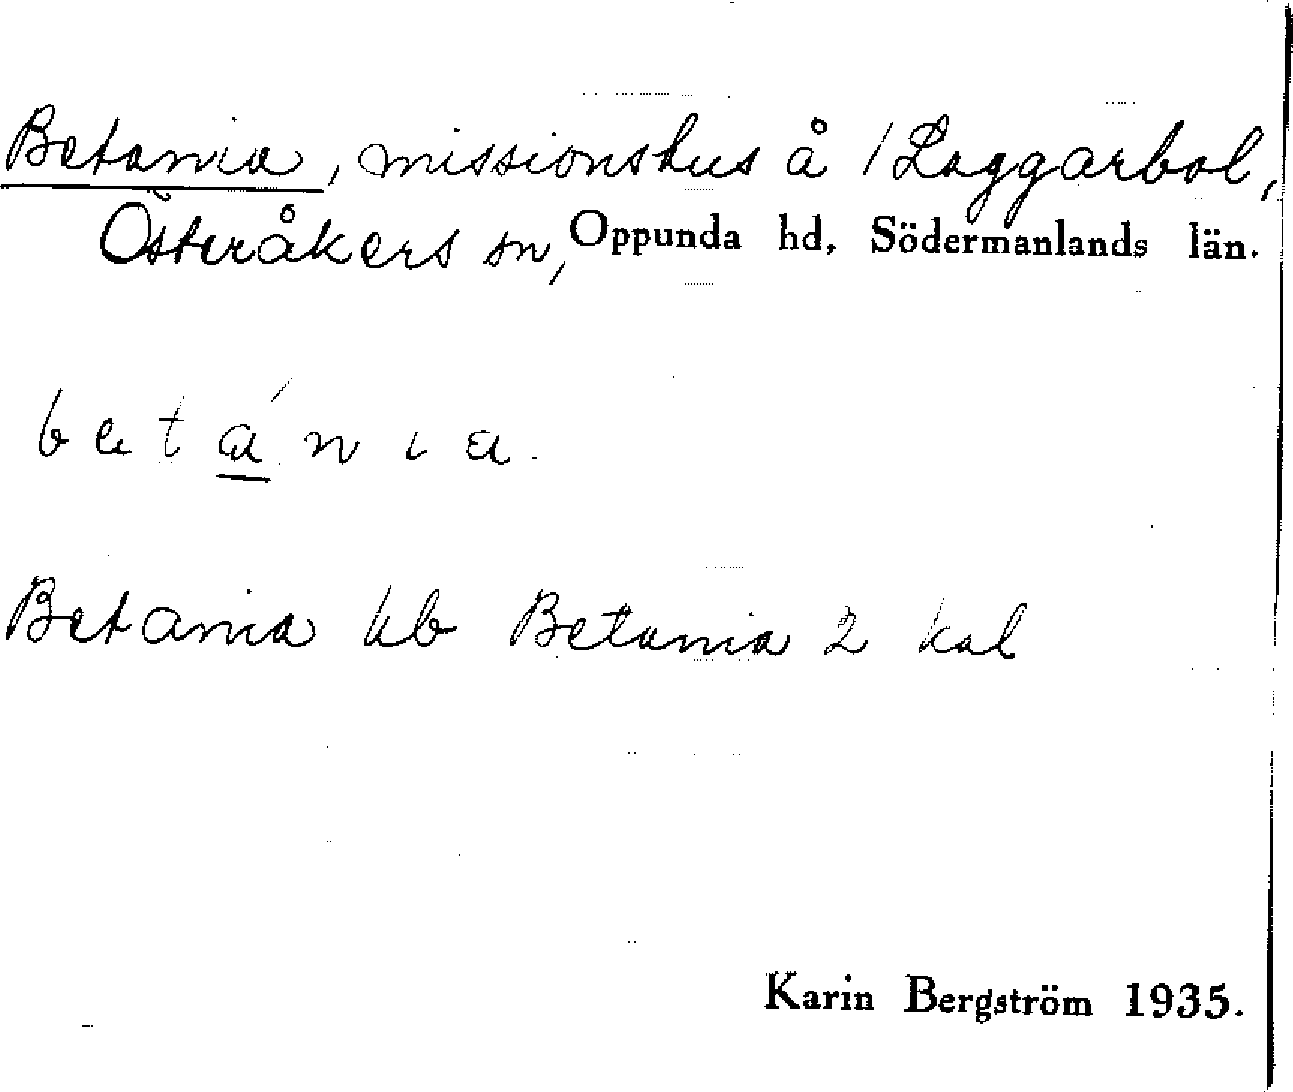 Betania, missionshus å 1 Laggarbol,
Österåkers sn, Oppunda hd, Södermanlands län.
betánia.
Betania kb Betania 2 kal
Karin Bergström 1935.